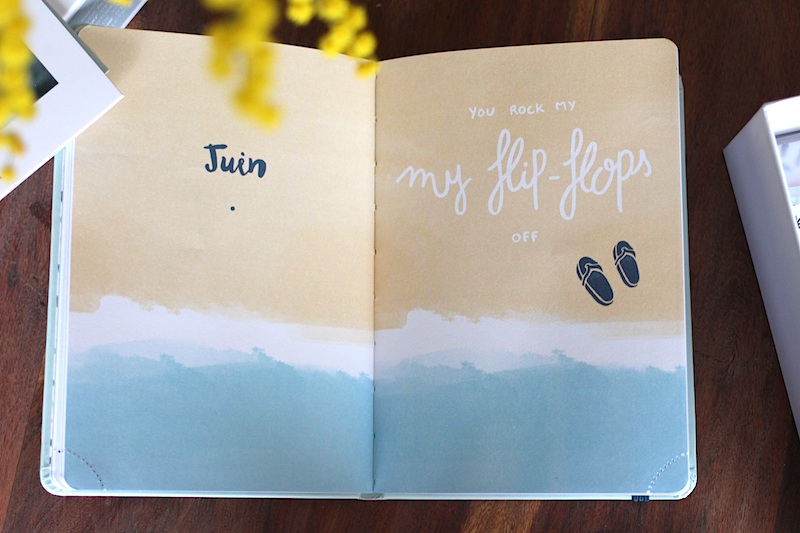 Juin
YOU ROCK MY
my flip-flops
OFF